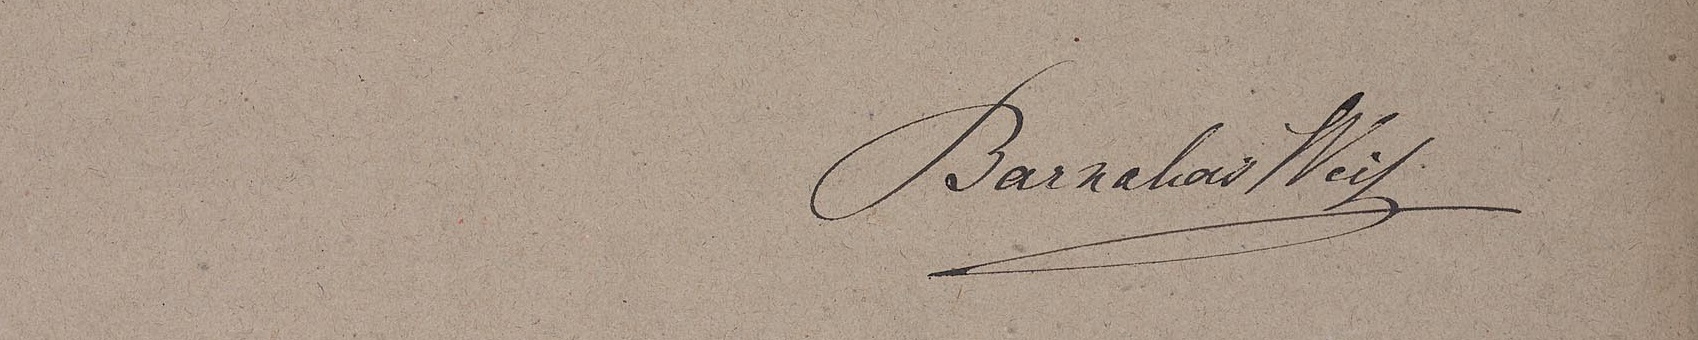 Barnabas Weiß